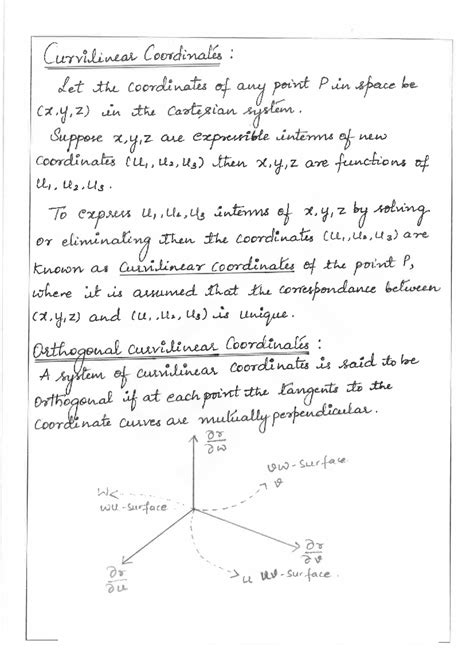 Curvilinear Coordinates :
Let the coordinates of any point P in space be
(x,y,z) in the Cartesian system.
Suppose x,y,z are expressible interms of new
coordinates (u₁,u₂,u₃) then x,y,z are functions of
u₁,u₂,u₃.
To express u₁,u₂,u₃ interms of x,y,z by solving
or eliminating then the coordinates (u₁,u₂,u₃) are
known as Curvilinear coordinates of the point P,
where it is assumed that the correspondance between
(x,y,z) and (u₁,u₂,u₃) is unique.
Orthogonal curvilinear Coordinates :
A system of curvilinear coordinates is said to be
orthogonal if at each point the tangents to the
coordinate curves are mutually perpendicular.
∂r/∂w
vw-surface
v
w
wu-surface
∂r/∂v
∂r/∂u
u uv-surface.